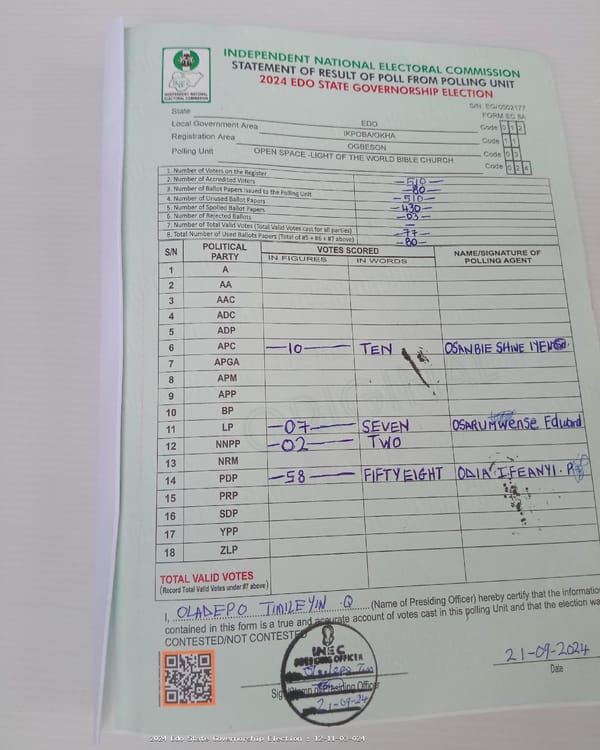 INDEPENDENT NATIONAL ELECTORAL COMMISSION
STATEMENT OF RESULT OF POLL FROM POLLING UNIT
2024 EDO STATE GOVERNORSHIP ELECTION
INEC
INDEPENDENT NATIONAL ELECTORAL COMMISSION
S/N: EG/0002177
FORM EC 8A
State EDO
Local Government Area IKPOBA/OKHA Code 0 1 2
Registration Area OGBESON Code 1 1
Polling Unit OPEN SPACE -LIGHT OF THE WORLD BIBLE CHURCH Code 0 3
Code 0 2 4
1. Number of Voters on the Register —510—
2. Number of Accredited Voters —80—
3. Number of Ballot Papers Issued to the Polling Unit —510—
4. Number of Unused Ballot Papers —430—
5. Number of Spoiled Ballot Papers —03—
6. Number of Rejected Ballots —
7. Number of Total Valid Votes (Total Valid Votes cast for all parties) —77—
8. Total Number of Used Ballots Papers (Total of #5 + #6 + #7 above) —80—
S/N POLITICAL PARTY VOTES SCORED NAME/SIGNATURE OF POLLING AGENT
IN FIGURES IN WORDS
1 A
2 AA
3 AAC
4 ADC
5 ADP
6 APC —10— TEN OSANBIE SHINE
7 APGA
8 APM
9 APP
10 BP
11 LP —07— SEVEN OSARUMWense Edward
12 NNPP —02— TWO
13 NRM
14 PDP —58— FIFTY EIGHT ODIA IFEANYI. P
15 PRP
16 SDP
17 YPP
18 ZLP
TOTAL VALID VOTES
(Record Total Valid Votes under #7 above)
I, OLADEPO TIMILEYIN .Q (Name of Presiding Officer) hereby certify that the information
contained in this form is a true and accurate account of votes cast in this polling Unit and that the election was
CONTESTED/NOT CONTESTED
INEC
PRESIDING OFFICER
21-09-24
21-09-2024
Sign/Stamp of Presiding Officer
Date
2024 Edo State Governorship Election : 12-11-03-024